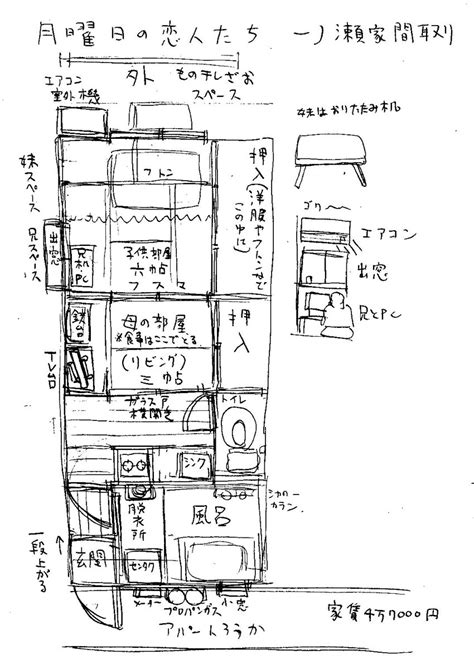 月曜日の恋人たち 一ノ瀬家間取り
エアコン
室外機
外
もの干しざお
スペース
妹はおりたたみ机
妹スペース
兄スペース
フトン
押入(洋服やフトンなど
この中に)
出窓
兄
机
PC
子供部屋
六帖
フスマ
ゴワ〜
エアコン
出窓
兄とPC
鏡台
母の部屋
※食事はここでとる
(リビング)
三帖
押入
TV台
ガラス戸
横開き
トイレ
シンク
脱衣所
風呂
シャワー
カラン
一段上がる
玄関
センタク
メーター
プロパンガス
小窓
アパートろうか
家賃4万7000円